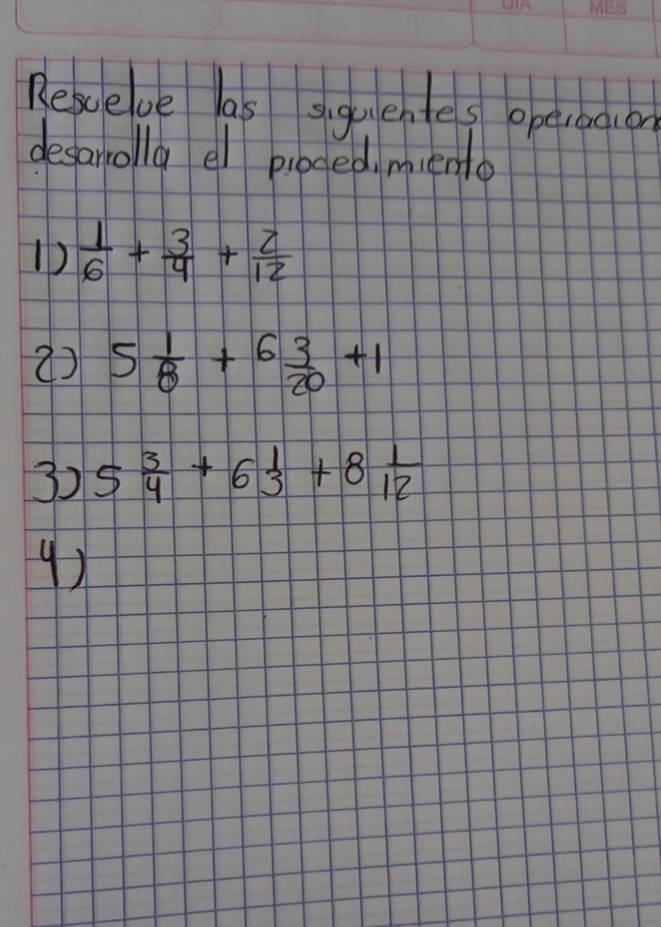 DIA MES
Resuelve las siguientes operacion
desarrolla el procedimiento
1) 1/6 + 3/4 + 2/12
2) 5 1/8 + 6 3/20 + 1
3) 5 3/4 + 6 1/3 + 8 1/12
4)